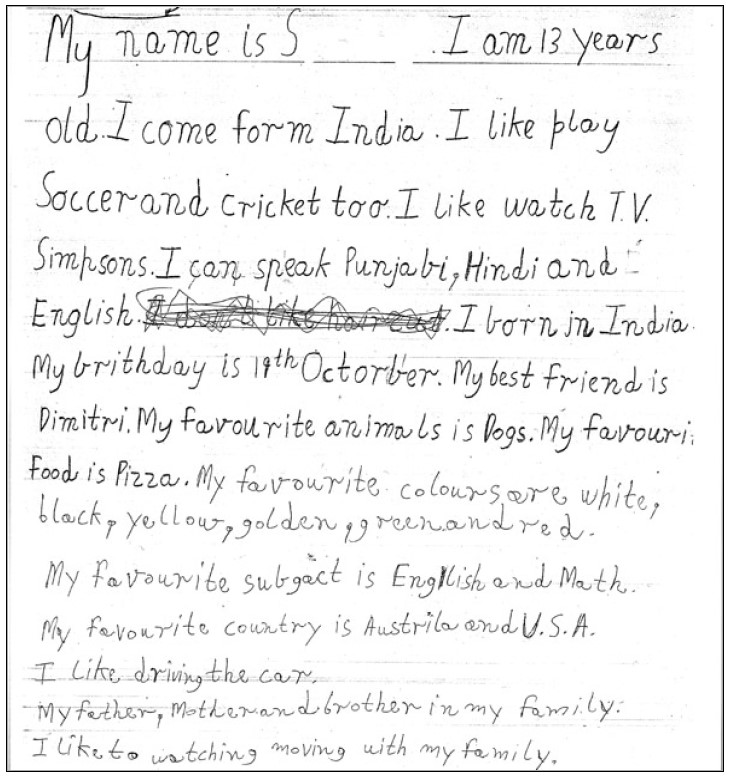 My name is S ______ . I am 13 years
old. I come form India. I like play
Soccer and cricket too. I like watch T.V.
Simpsons. I can speak Punjabi, Hindi and
English. I don't like haircut. I born in India.
My brithday is 19th Octorber. My best friend is
Dimitri. My favourite animals is Dogs. My favouri
Food is Pizza. My favourite colours are white,
black, yellow, golden, green and red.
My favourite subgact is English and Math.
My favourite country is Austrila and U.S.A.
I like driving the car.
My father, Mother and brother in my family.
I like to watching moving with my family.